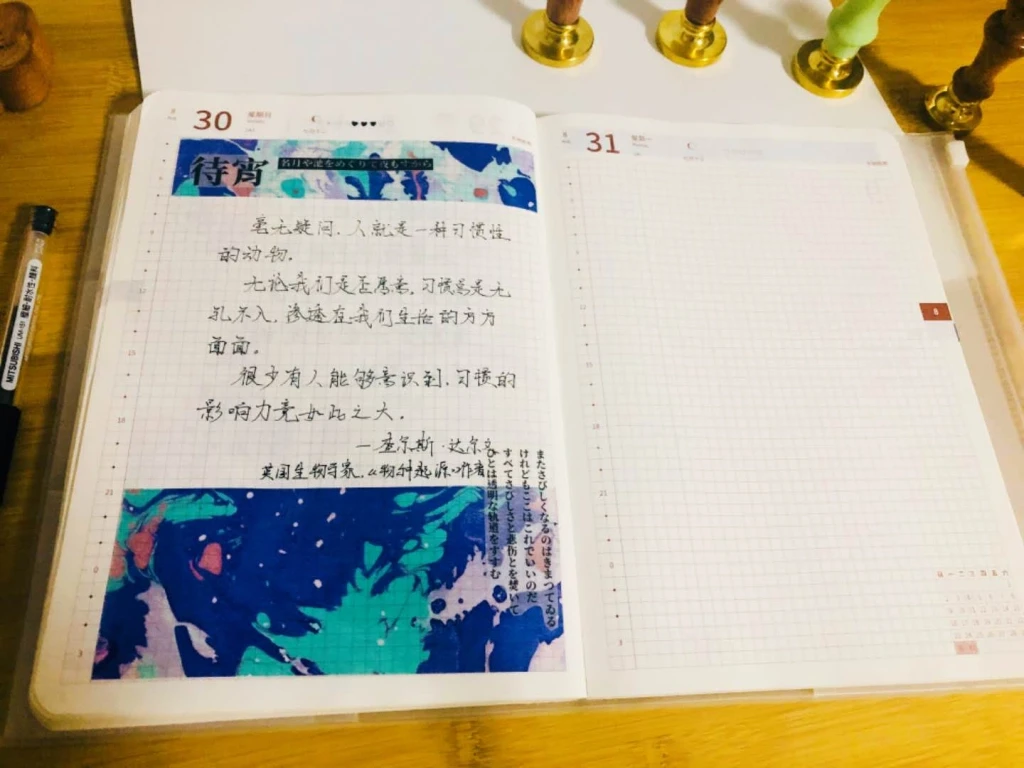 8
30
星期日
待宵
名月や池をめぐりて夜もすがら
毫无疑问，人就是一种习惯性
的动物。
无论我们是否愿意，习惯总是无
孔不入，渗透在我们生活的方方
面面。
很少有人能够意识到，习惯的
影响力竟如此之大。
—查尔斯·达尔文
英国生物学家，《物种起源》作者
またさびしくなるのはきまつてゐる
けれどもここはこれでいいのだ
すべてさびしさと悲傷とを焚いて
ひとは透明な軌道をすすむ
21
0
3
8
31
星期一
8
21
0
3
日 一 二 三 四 五 六
MITSUBISHI